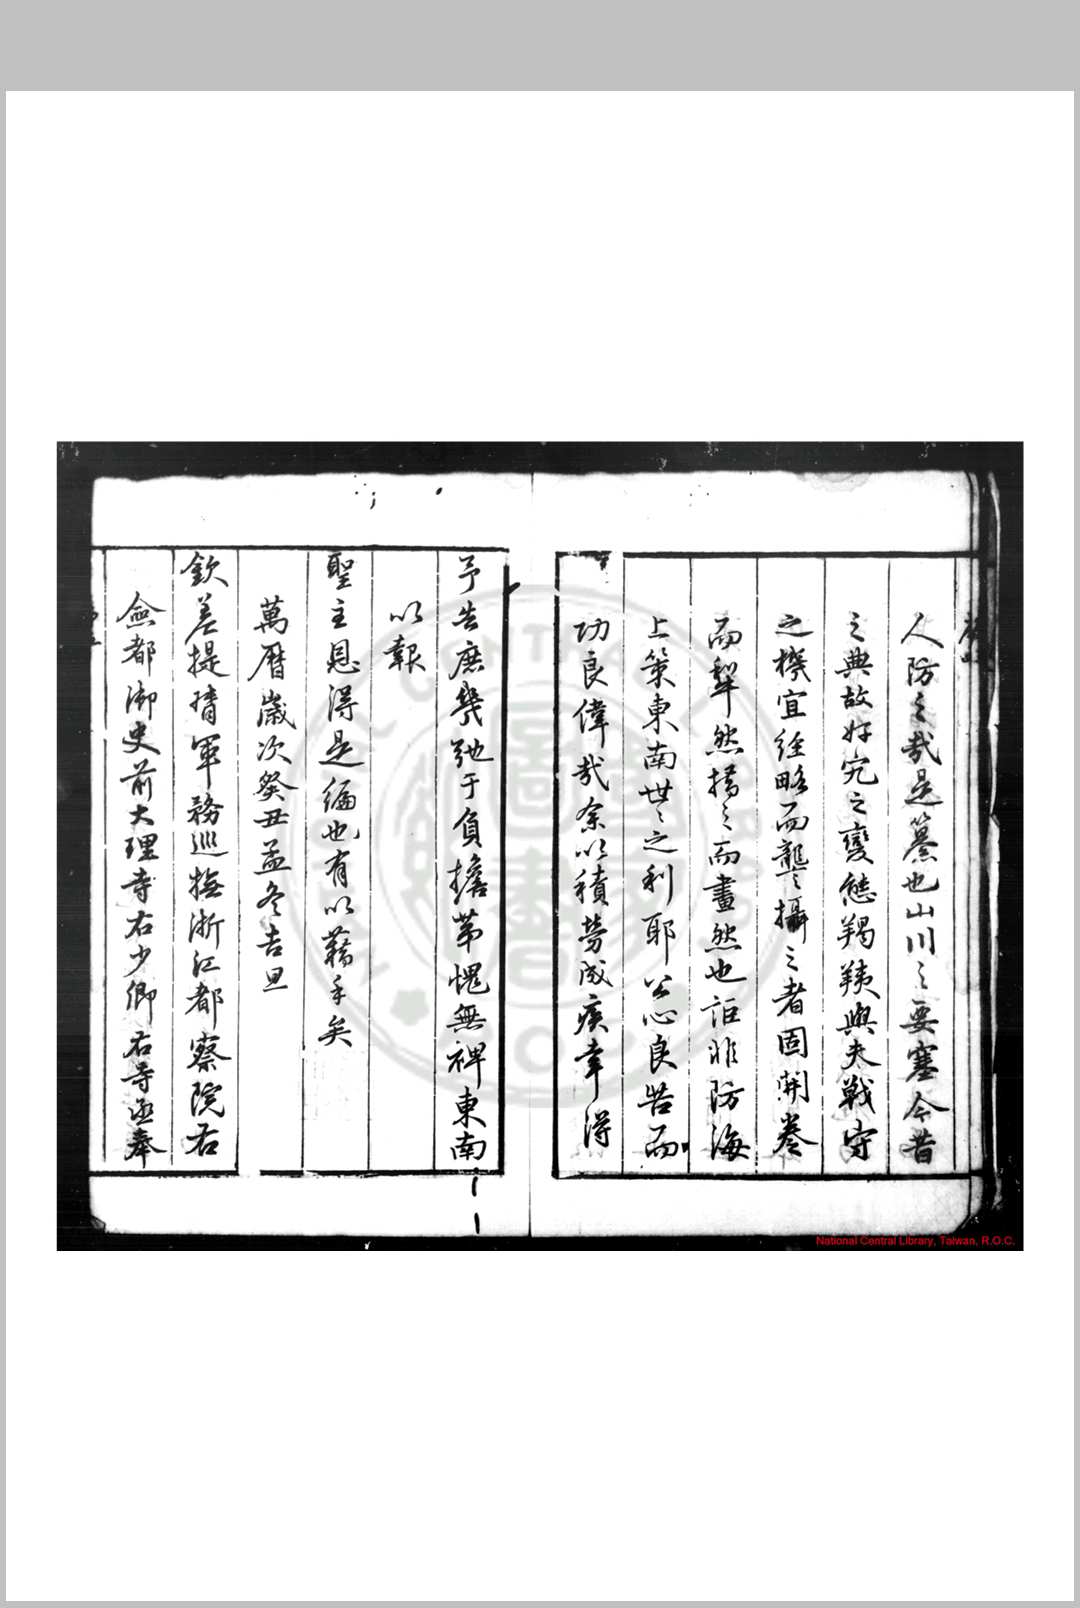 人防之哉是纂也山川之要塞今昔
之典故奸宄之變態羯羠與夫戰守
之機宜經略而龔〻攝之者固開卷
而犂然撟之而畫然也詎非防海
上策東南世〻之利耶公心良苦而
功良偉哉余以積勞成疾幸得
予告庶幾弛于負擔第愧無裨東南
以報
聖主恩得是編也有以藉手矣
萬曆歲次癸丑孟冬吉旦
欽差提督軍務巡撫浙江都察院右
僉都御史前大理寺右少卿右寺丞奉
National Central Library, Taiwan, R.O.C.